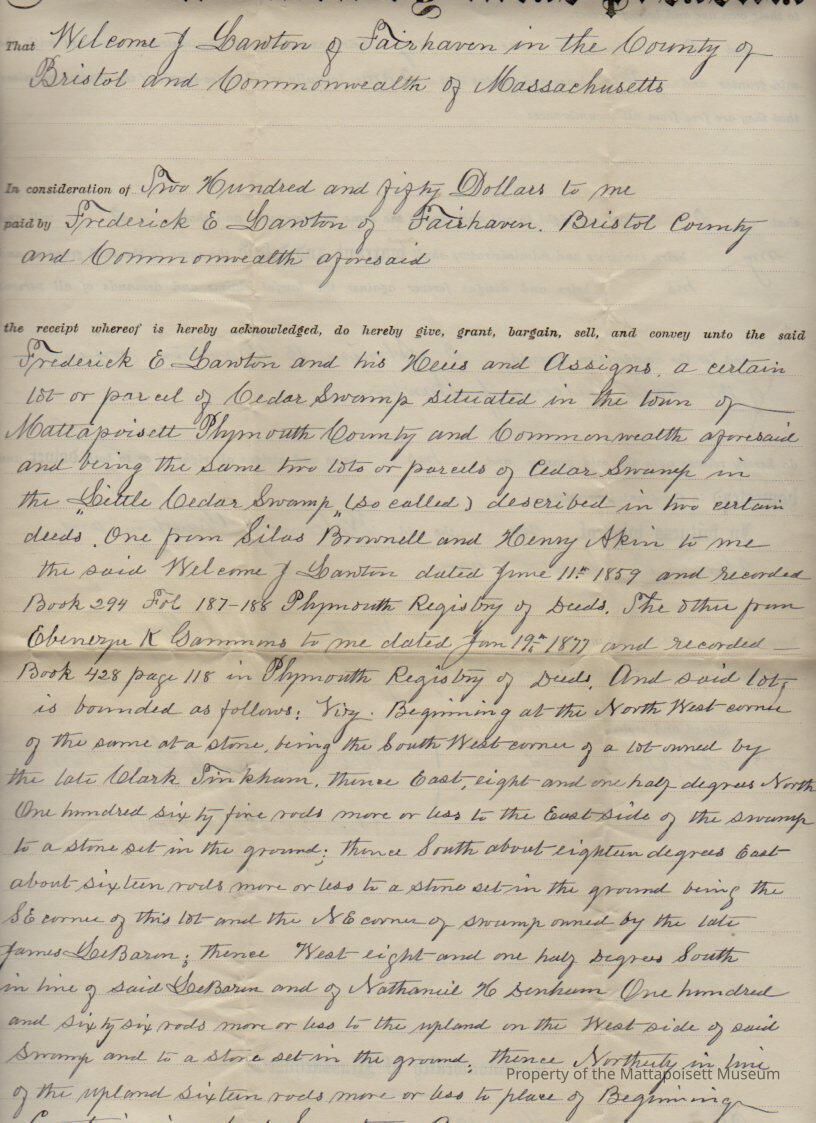 That Welcome J Lawton of Fairhaven in the County of
Bristol and Commonwealth of Massachusetts
In consideration of Two Hundred and fifty Dollars to me
paid by Frederick E Lawton of Fairhaven. Bristol County
and Commonwealth aforesaid
the receipt whereof is hereby acknowledged, do hereby give, grant, bargain, sell, and convey unto the said
Frederick E Lawton and his Heirs and Assigns, a certain
lot or parcel of Cedar Swamp situated in the town of
Mattapoisett Plymouth County and Commonwealth aforesaid
and being the same two lots or parcels of Cedar Swamp in
the "Little Cedar Swamp" (so called) described in two certain
deeds. One from Silas Brownell and Henry Akin to me
the said Welcome J Lawton dated June 11th 1859 and recorded
Book 294 Fol 187-188 Plymouth Registry of Deeds. The other from
Ebenezer K Gammons to me dated Jan 19th 1877 and recorded
Book 428 page 118 in Plymouth Registry of Deeds. And said lots
is bounded as follows: Viz. Beginning at the North West corner
of the same at a stone, being the South West corner of a lot owned by
the late Clark Tinkham, thence East, eight and one half degrees North
One hundred sixty five rods more or less to the East side of the swamp
to a stone set in the ground; thence South about eighteen degrees East
about sixteen rods more or less to a stone set in the ground being the
SE corner of this lot and the NE corner of swamp owned by the late
James LeBaron; thence West eight and one half Degrees South
in line of said LeBaron and of Nathaniel H Denham One hundred
and sixty six rods more or less to the upland on the West side of said
Swamp and to a stone set in the ground; thence Northerly in line
of the upland sixteen rods more or less to place of Beginning
Property of the Mattapoisett Museum